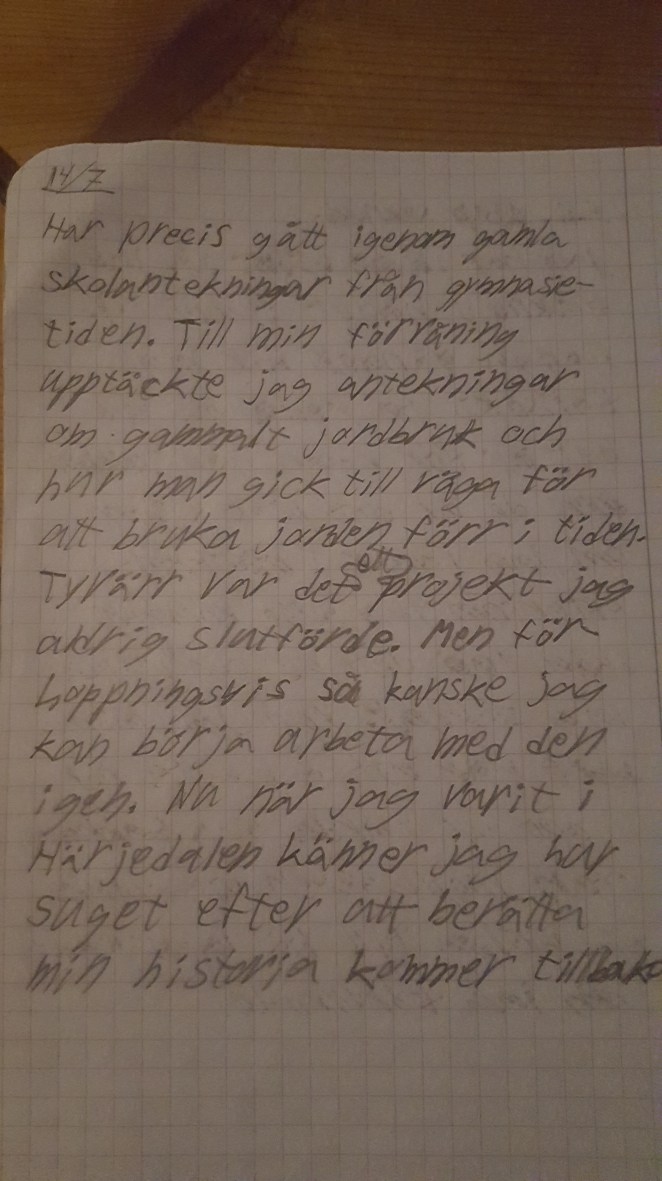 14/7
Har precis gått igenom gamla
skolantekningar från gymnasie-
tiden. Till min förvåning
upptäckte jag antekningar
om gammalt jordbruk och
hur man gick till väga för
att bruka jorden förr i tiden.
ett
Tyvärr var det projekt jag
aldrig slutförde. Men för
hoppningsvis så kanske jag
kan börja arbeta med den
igen. Nu när jag varit i
Härjedalen känner jag hur
suget efter att berätta
min historia kommer tillbaka